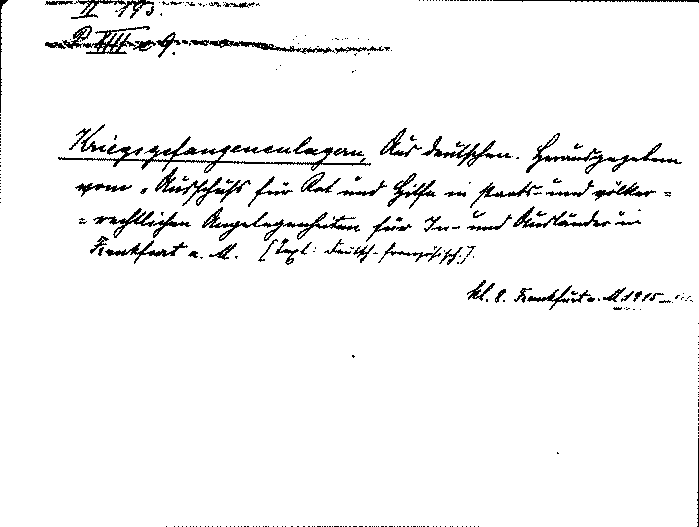 II 193.
Kriegsgefangenenlagern, Aus deutschen. Herausgegeben
vom „Ausschuß für Rat und Hilfe in staats- und völker=
=rechtlichen Angelegenheiten für In- und Ausländer" in
Frankfurt a. M. [Text: deutsch-französisch.].
kl. 8. Frankfurt a. M. 1915